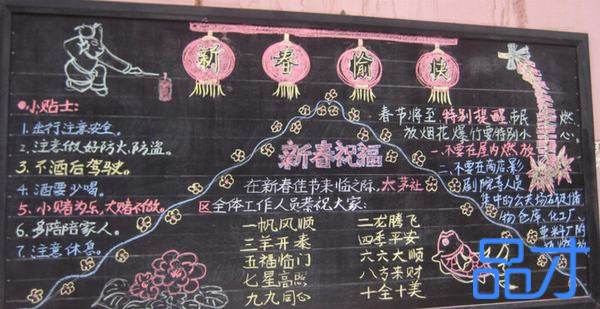 新春愉快
小贴士:
1.出行注意安全。
2.注意做好防火、防盗。
3.不酒后驾驶。
4.酒要少喝。
5.小赌为乐,大赌不做。
6.多陪陪家人。
7.注意休息。
新春祝福
在新春佳节来临之际,太茅社
区全体工作人员恭祝大家:
一帆风顺
二龙腾飞
三羊开泰
四季平安
五福临门
六六大顺
七星高照
八方来财
九九同心
十全十美
春节将至特别提醒市民,燃
放烟花爆竹要特别小心。
一.不要在屋内燃放
二.不要在商店、影
剧院等人员
集中的公共场所
物仓库、化工厂、
品才